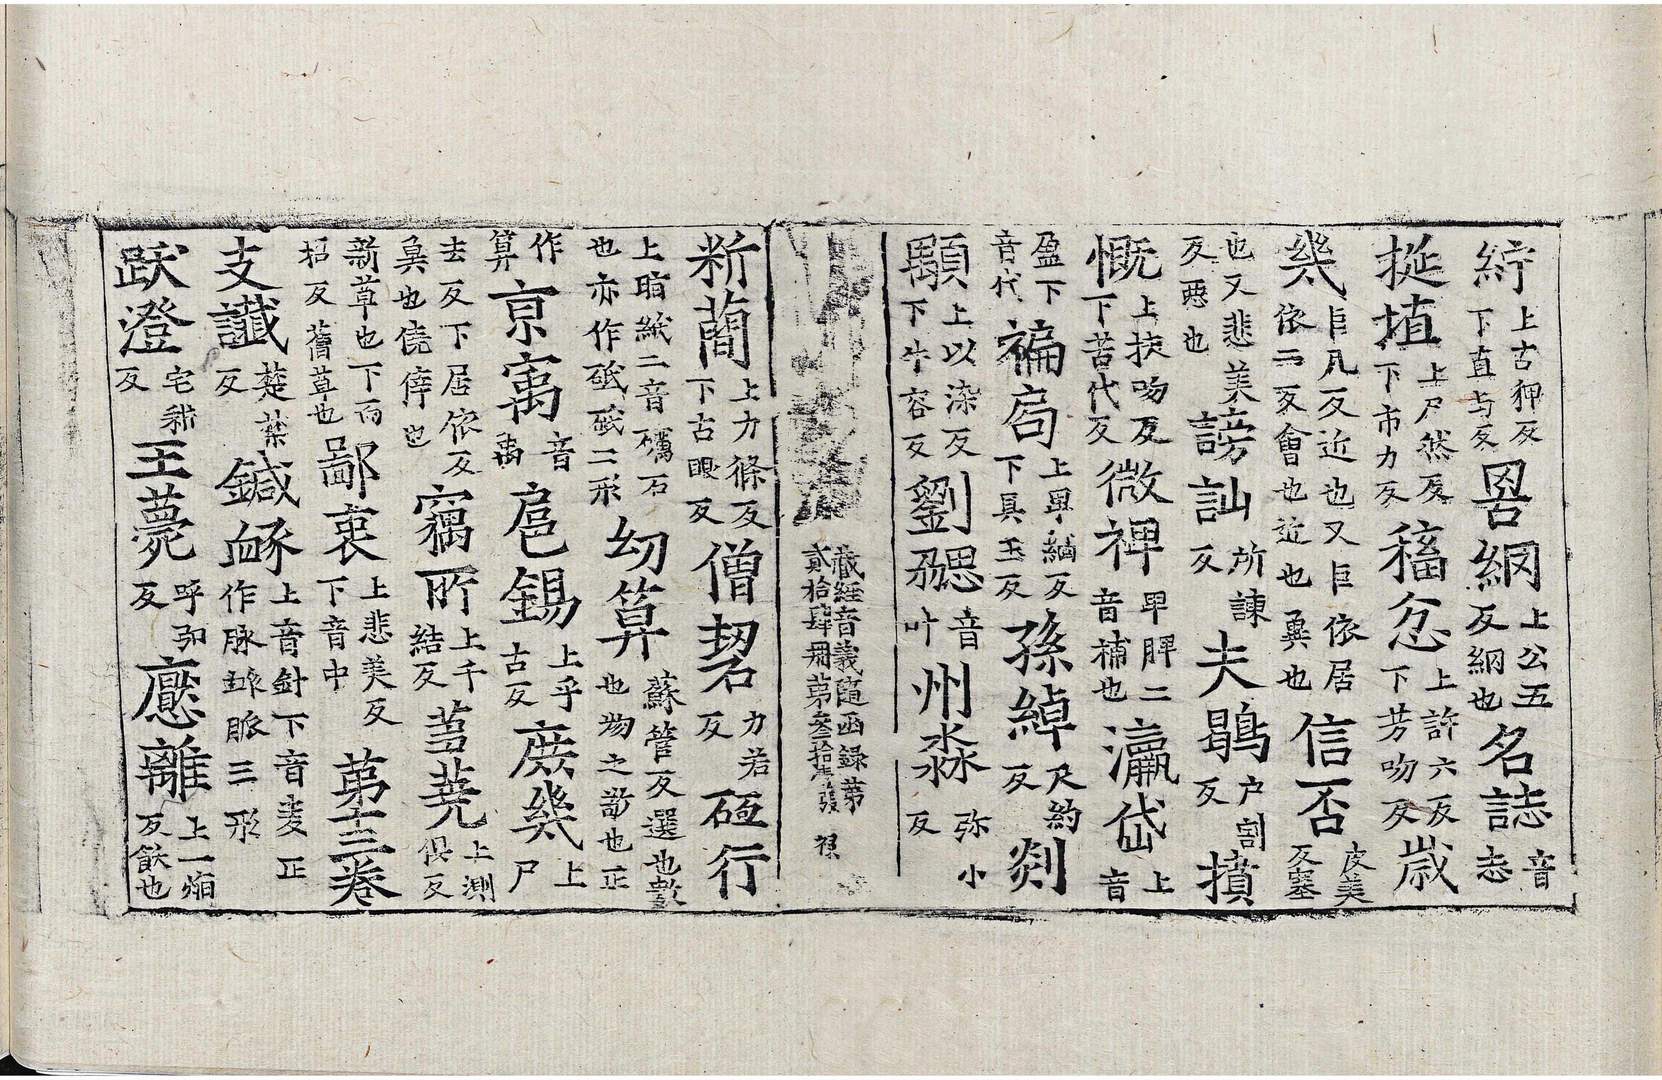 紵上古狎反下直与反罟網上公五反網也名誌音志
挻埴上尸然反下市力反稸忿上許六反下芳吻反歲
幾巨几反近也又巨依居依二反會也近也冀也信否皮美反塞
也又悲美反惡也謗訕所諫反夫鶡户割反墳
慨上扶吻反下苦代反微裨卑脾二音補也瀛岱上音
盈下音代褊局上卑緬反下具玉反孫綽尺約反剡
顒上以染反下牛容反劉勰音叶州淼弥小反
藏經音義隨函録第貳拾肆冊第叁拾張
斯蕑上力條反下古眼反僧䂮力若反砥行
上脂紙二音礪石也亦作砥砥二形幼筭蘇管反選也數也物之數也正
作算京㝢音禹扈錫上乎古反庶幾上尸
去反下居依反冀也僥倖也竊所上千結反蒭蕘上測俱反
新草也下而招反舊草也鄙衷上悲美反下音中第十三卷
支讖楚蔭反鍼䘑上音針下音麦正作脉脈三形
跃澄宅耕反王薨呼弘反應離上一塩反飫也